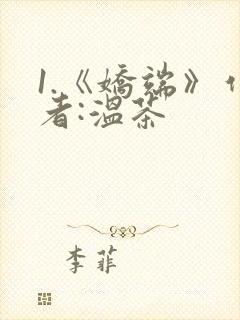 1.《嬌端》
者:溫茶
李菲